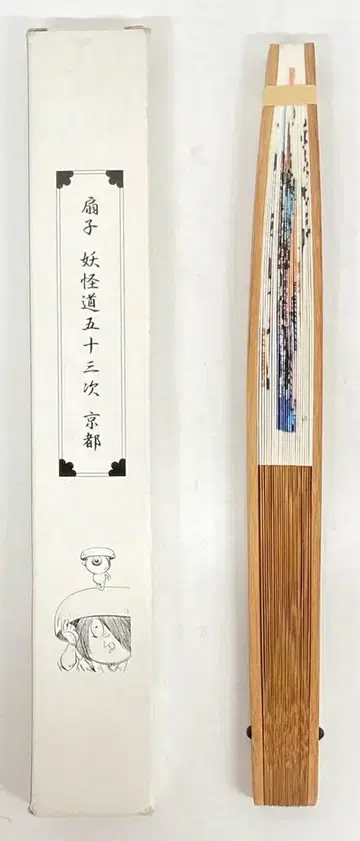 扇子 妖怪道五十三次 京都